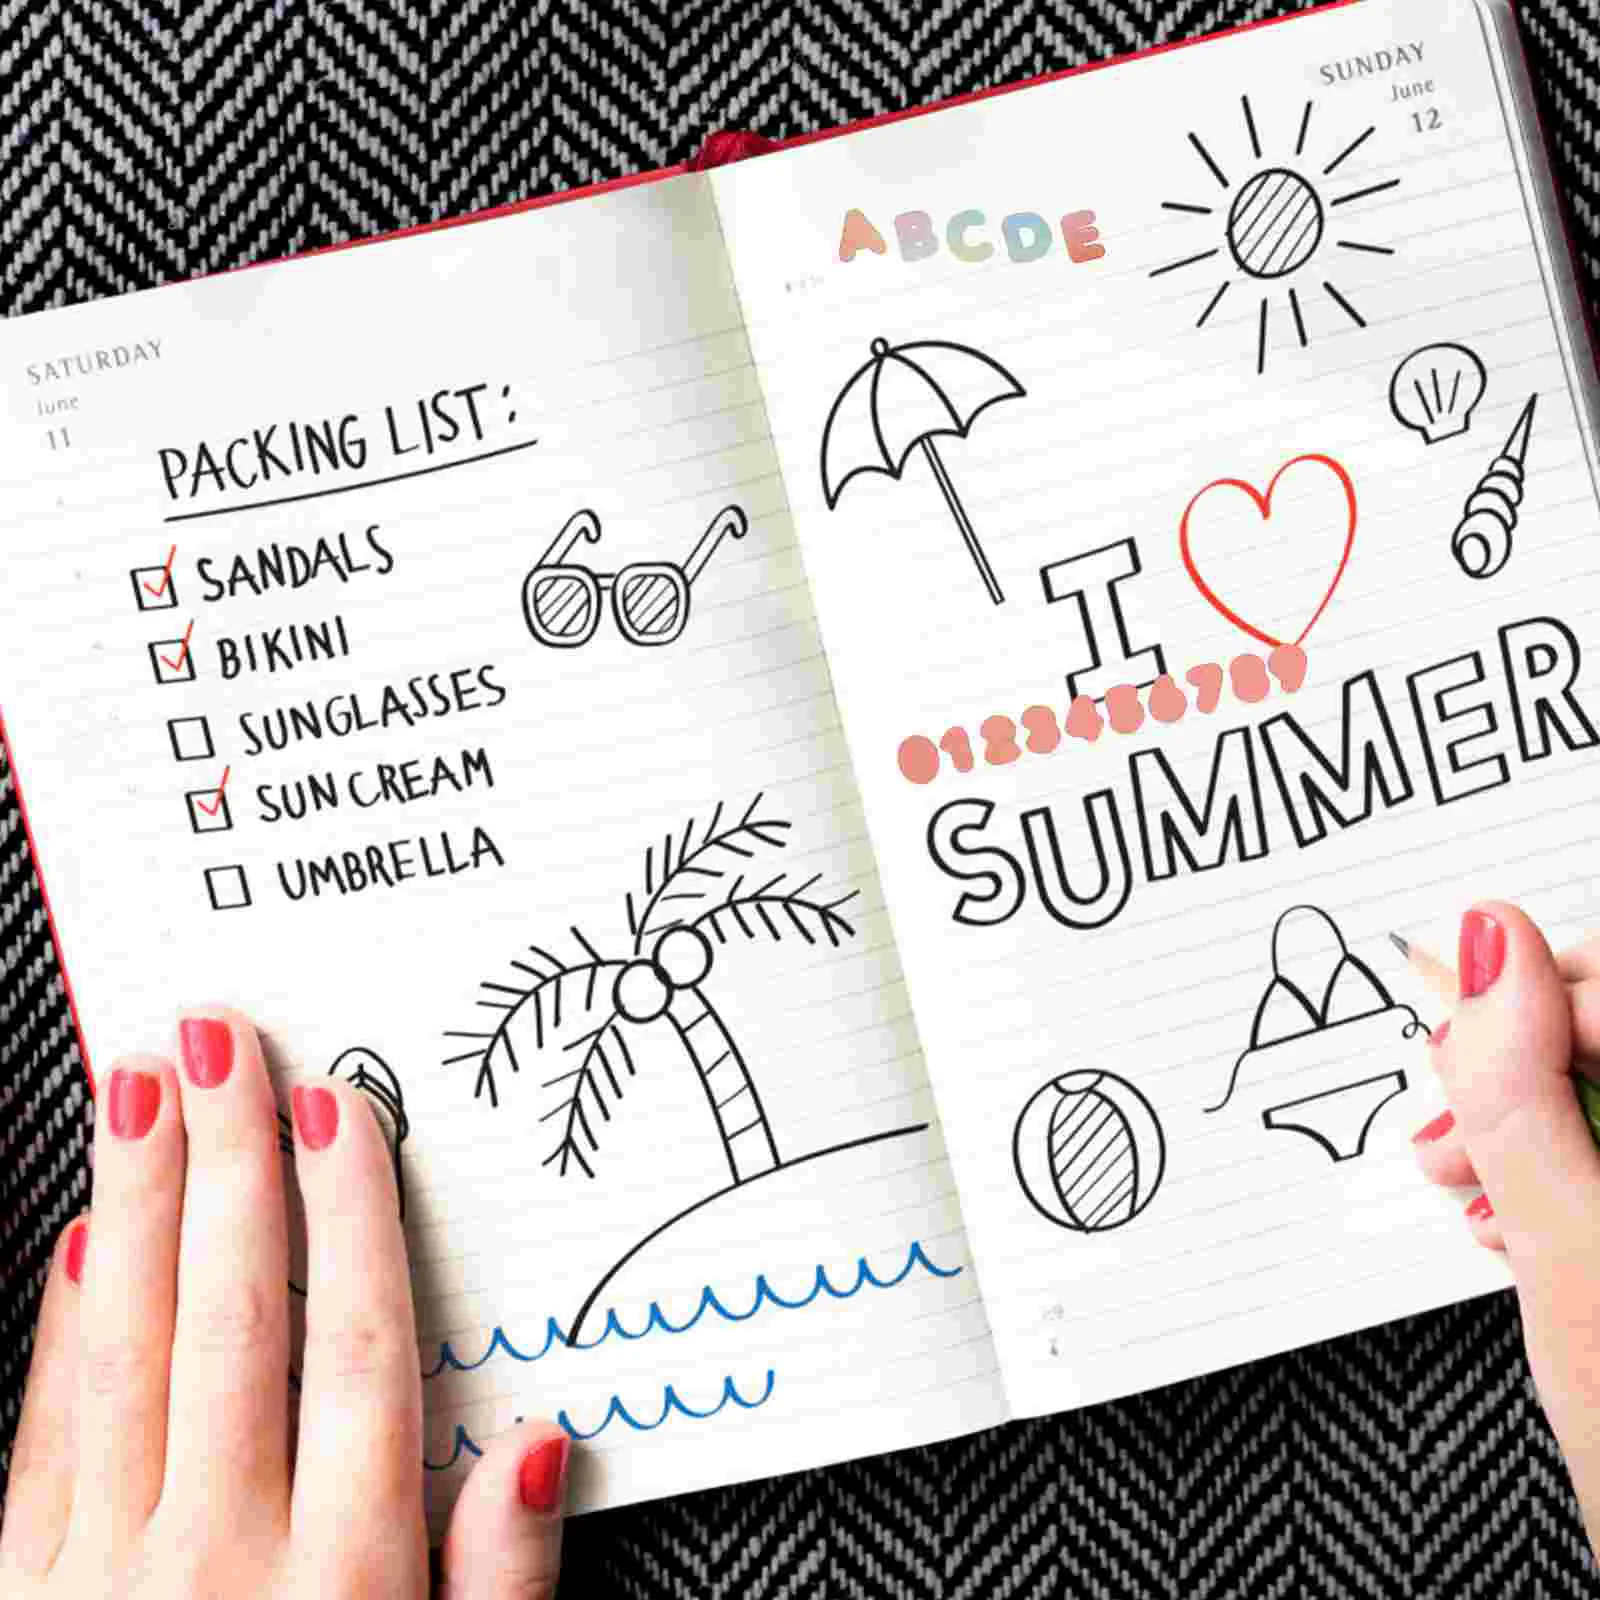 SATURDAY
June
11
PACKING LIST:
SANDALS
BIKINI
SUNGLASSES
SUN CREAM
UMBRELLA
SUNDAY
June
12
ABCDE
I
0123456789
SUMMER